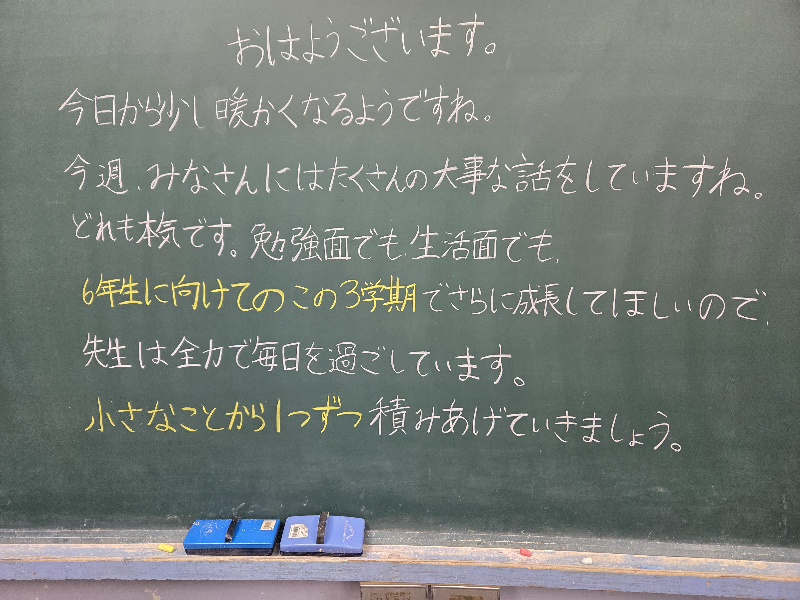 おはようございます。
今日から少し暖かくなるようですね。
今週、みなさんにはたくさんの大事な話をしていますね。
どれも本気です。勉強面でも、生活面でも、
6年生に向けてのこの3学期でさらに成長してほしいので、
先生は全力で毎日を過ごしています。
小さなことから1つずつ積みあげていきましょう。